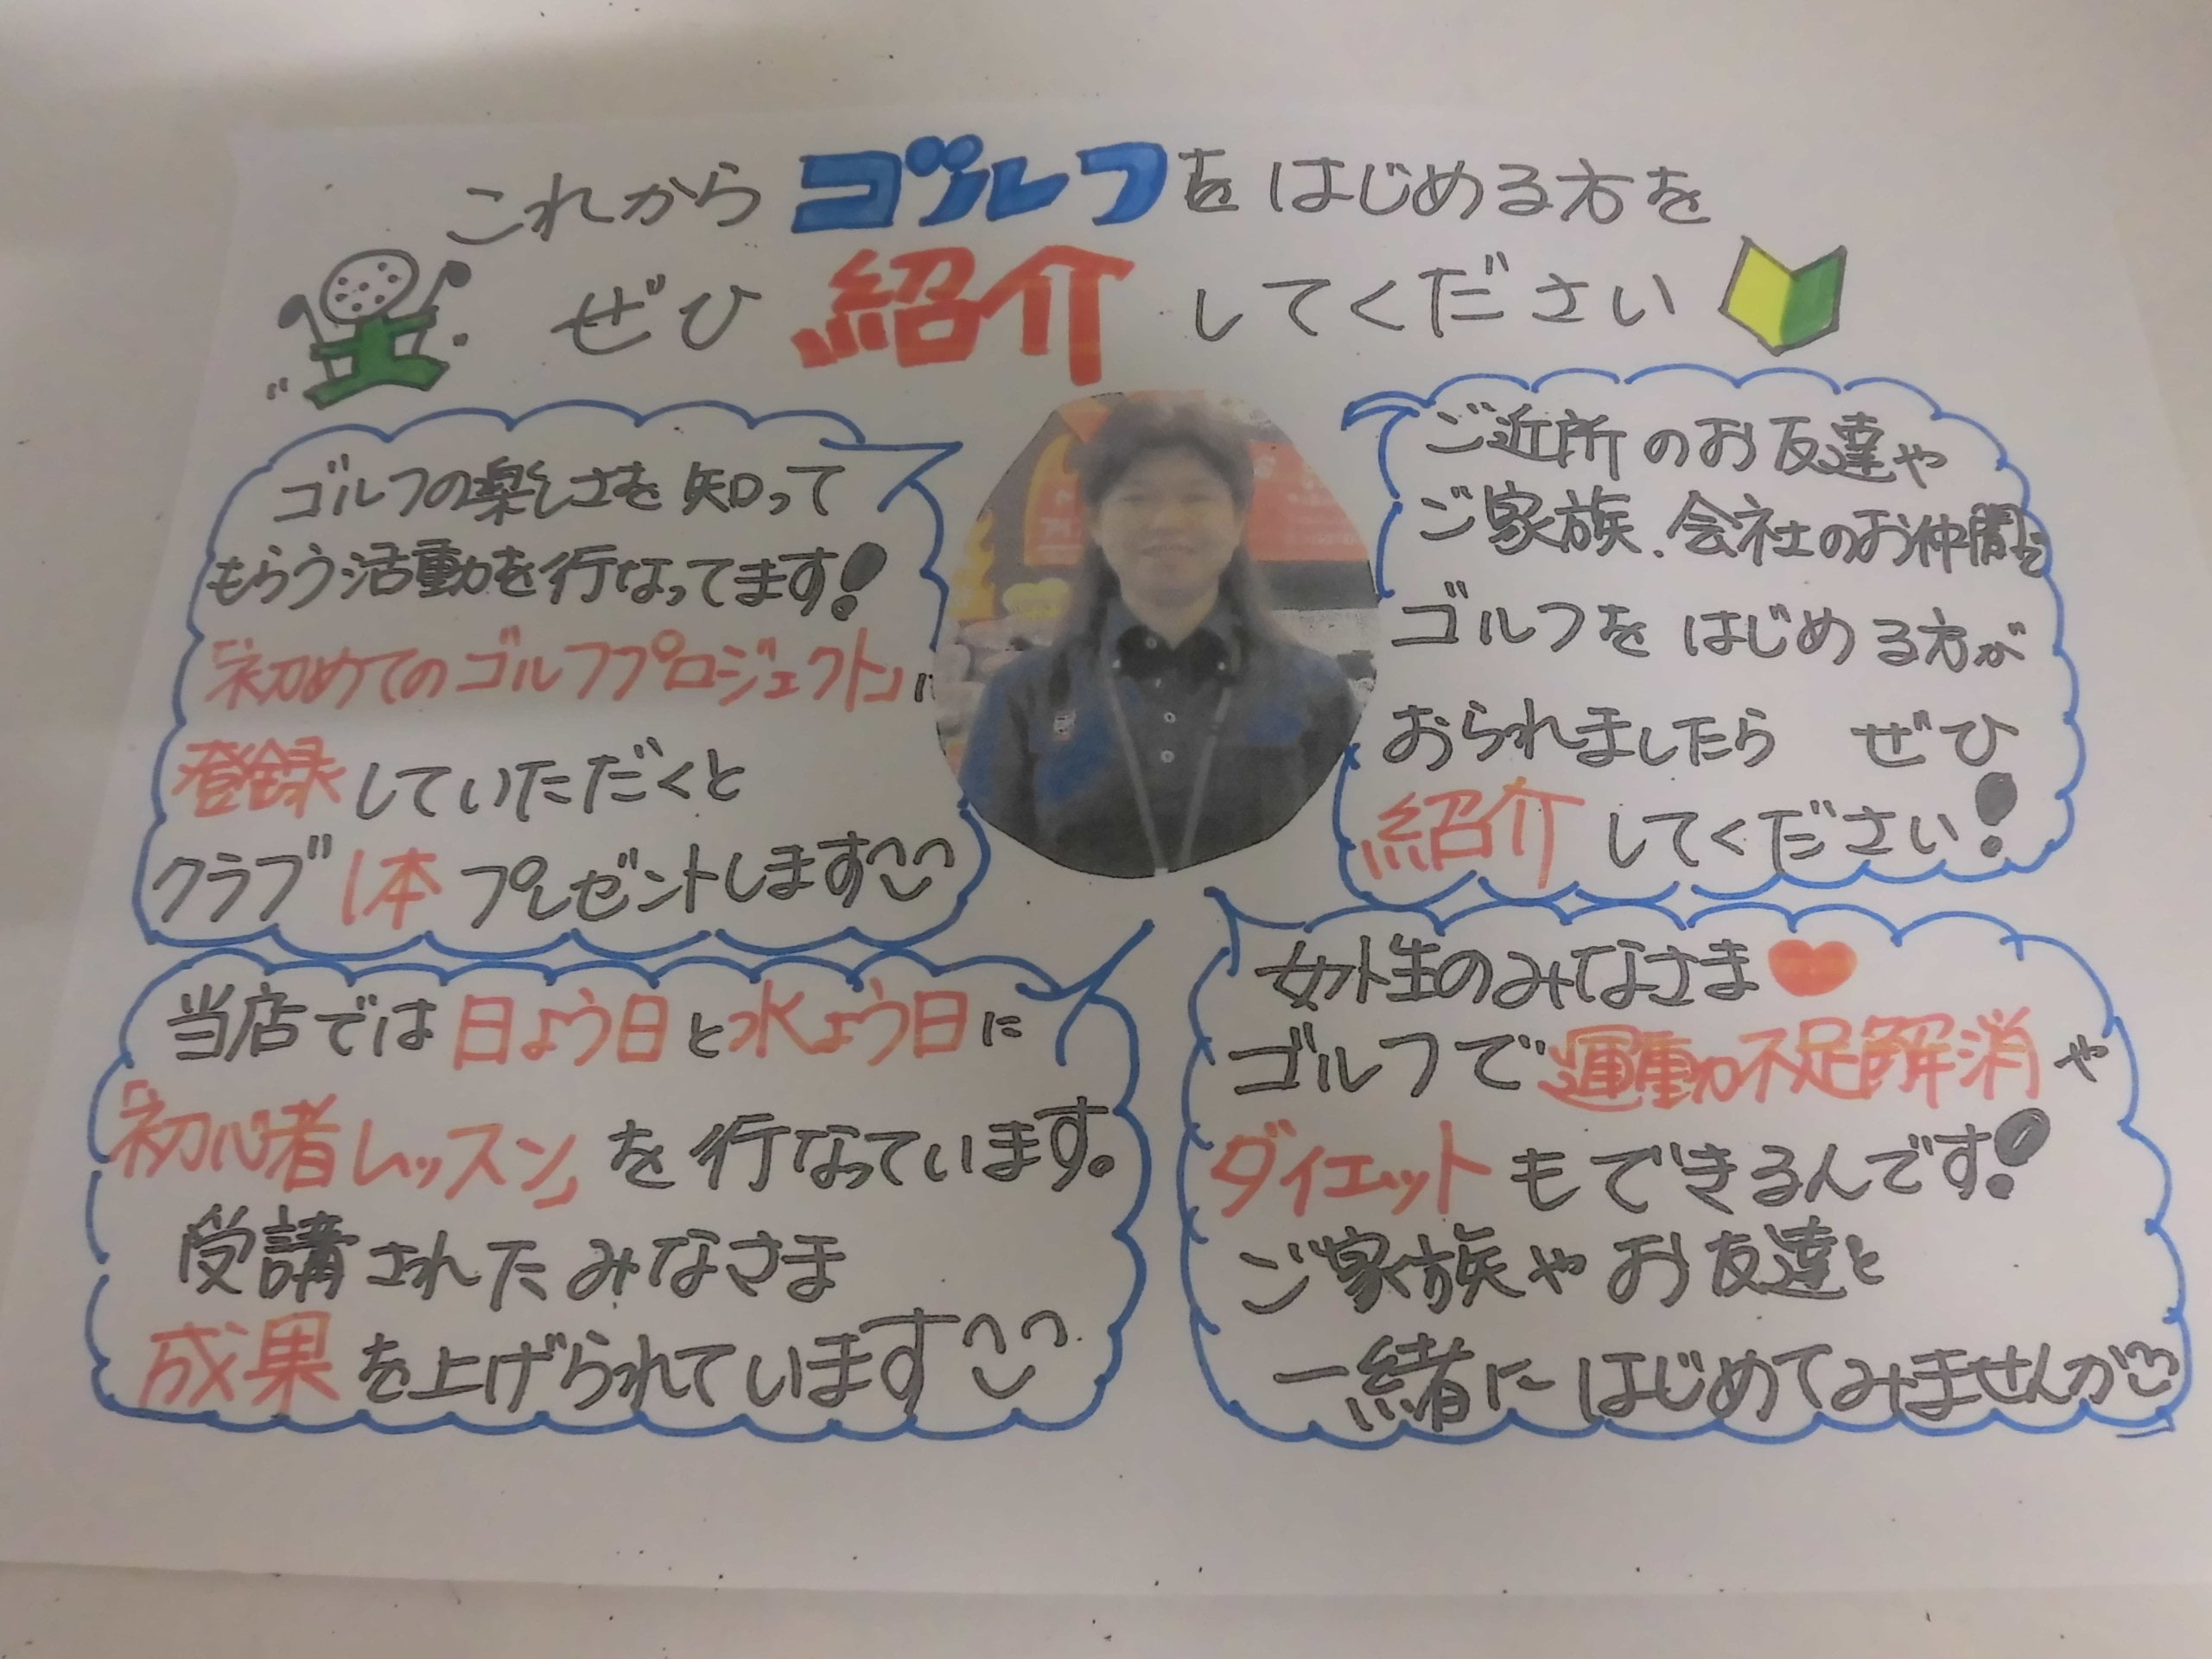 これからゴルフをはじめる方を
ぜひ紹介してください
ゴルフの楽しさを知って
もらう活動を行なってます!
「初めてのゴルフプロジェクト」に
登録していただくと
クラブ1本プレゼントします
ご近所のお友達や
ご家族、会社のお仲間で
ゴルフをはじめる方が
おられましたら ぜひ
紹介してください!
当店では日よう日と水よう日に
「初心者レッスン」を行なっています。
受講されたみなさま
成果を上げられています
女性のみなさま
ゴルフで運動不足解消や
ダイエットもできるんです!
ご家族やお友達と
一緒にはじめてみませんか